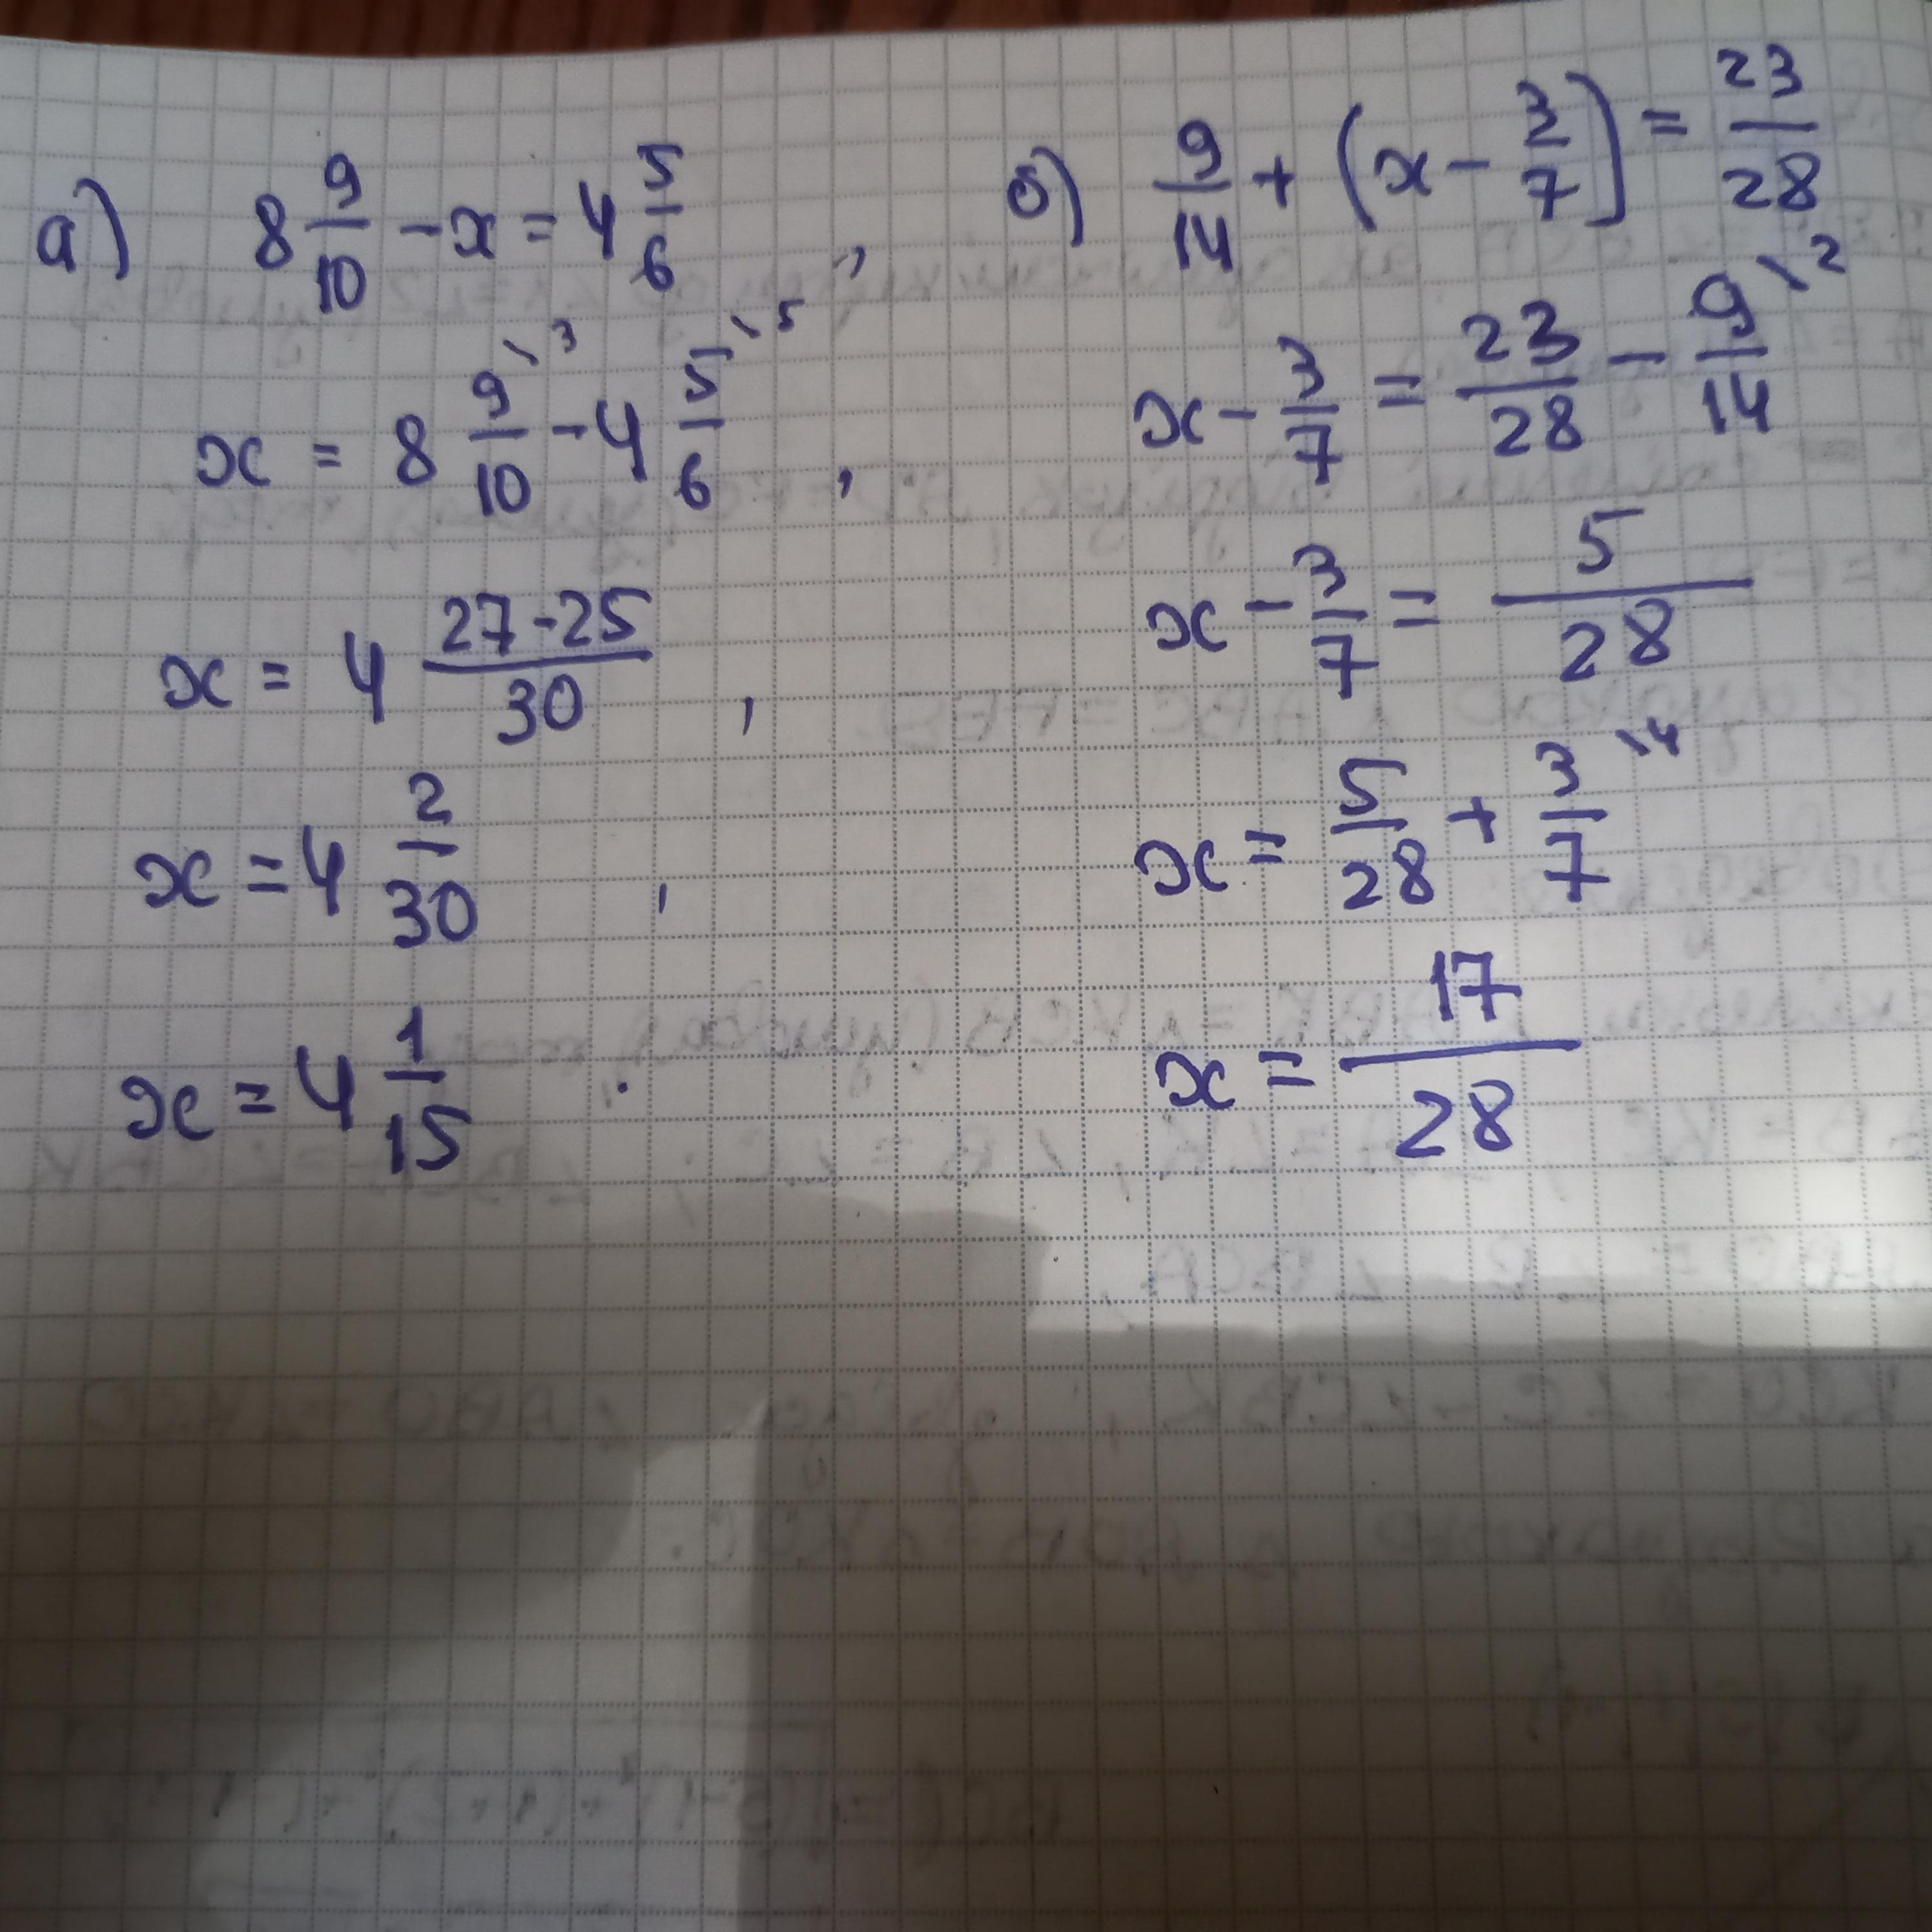 а) 8 9/10 - x = 4 5/6 ,
x = 8 9/10 \3 - 4 5/6 \5 ,
x = 4 27-25/30 ,
x = 4 2/30 ,
x = 4 1/15 .
б) 9/14 + (x - 3/7) = 23/28
x - 3/7 = 23/28 - 9/14 \2
x - 3/7 = 5/28
x = 5/28 + 3/7 \4
x = 17/28